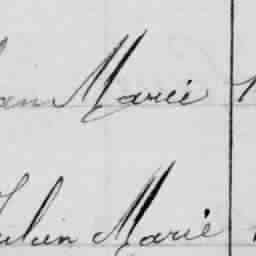 Marie
Julien Marie